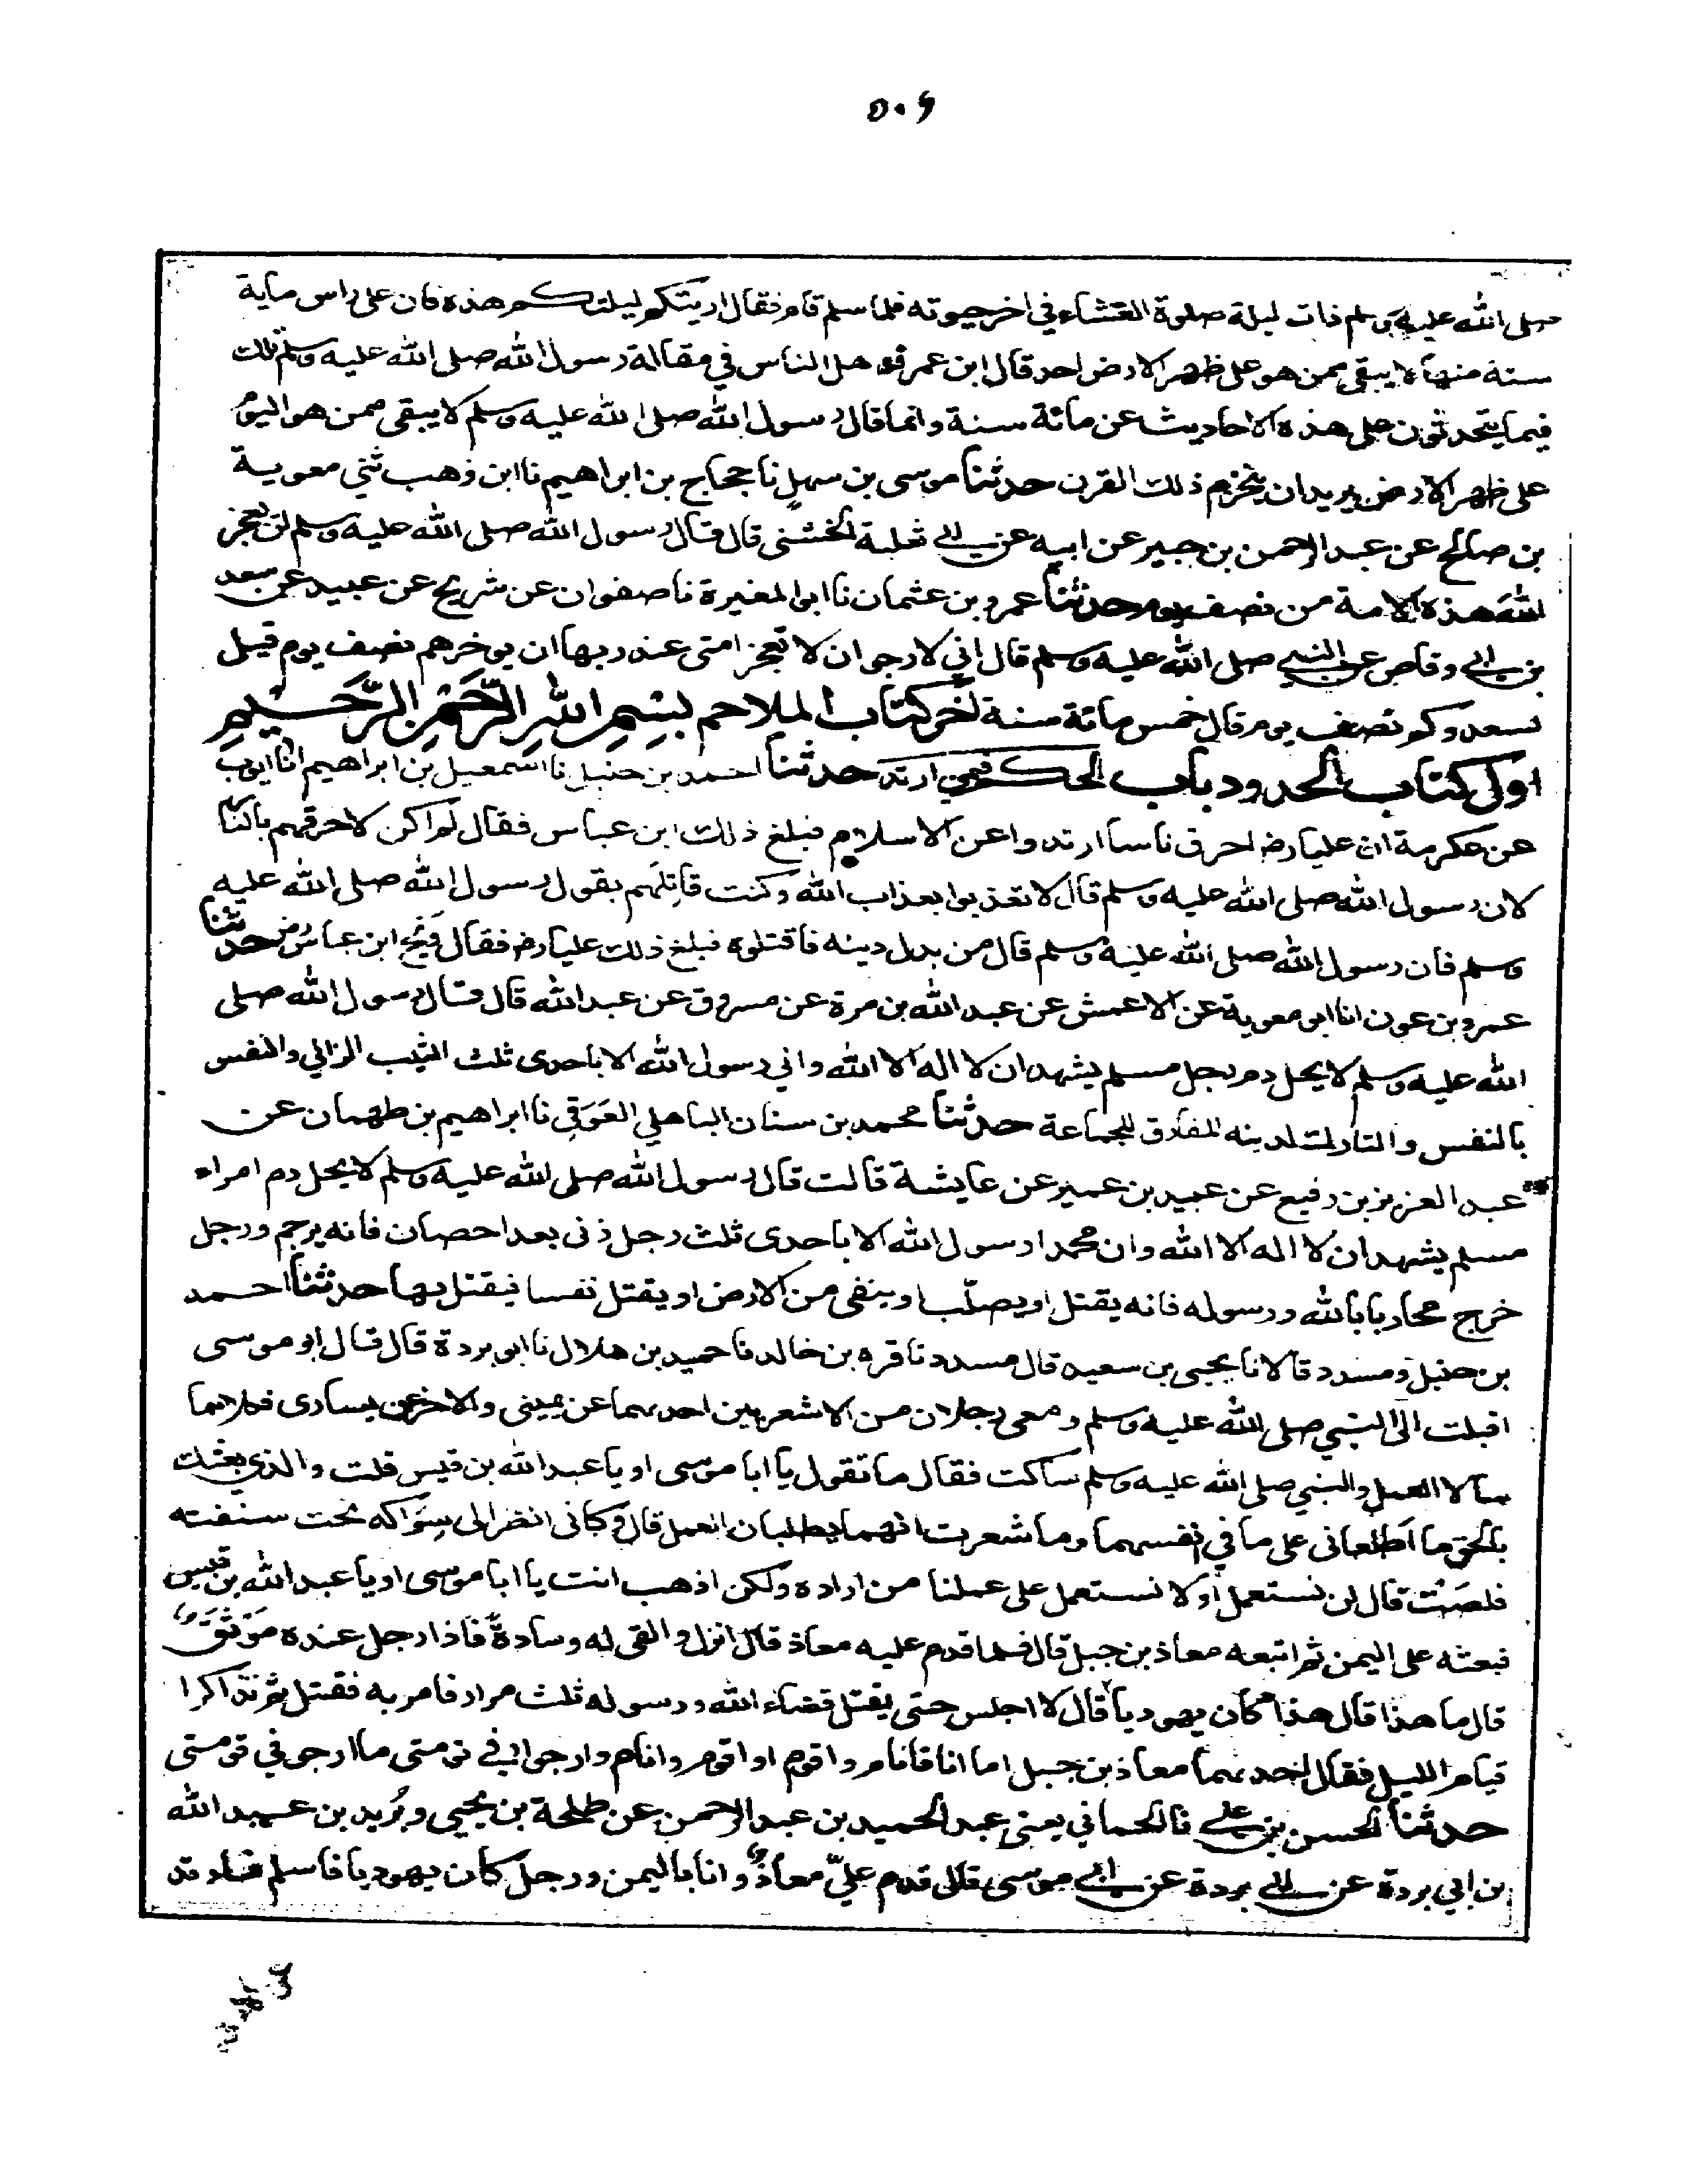 ٥٠٦
صلى الله عليه وسلم ذات ليلة صلوة العشاء في اخر حيوته فلما سلم قام فقال اريتكم ليلتكم هذه فان على راس ماية
سنة منها لا يبقى ممن هو على ظهر الارض احد قال ابن عمر فوهل الناس في مقالة رسول الله صلى الله عليه وسلم تلك
فيما يتحدثون على هذه الاحاديث عن مائة سنة وانما قال رسول الله صلى الله عليه وسلم لا يبقى ممن هو اليوم
على ظهر الارض يريد ان ينخرم ذلك القرن حدثنا موسى بن سهل نا حجاج بن ابراهيم نا ابن وهب ثني معوية
بن صالح عن عبد الرحمن بن جبير عن ابيه عن ابي ثعلبة الخشني قال قال رسول الله صلى الله عليه وسلم لن يعجز
الله هذه الامة من نصف يوم حدثنا عمرو بن عثمان نا ابو المغيرة نا صفوان عن شريح عن عبيد عن سعد
بن ابي وقاص عن النبي صلى الله عليه وسلم قال اني لارجو ان لا تعجز امتي عند ربها ان يوخرهم نصف يوم قيل
لسعد وكم نصف يوم قال خمس مائة سنة اخر كتاب الملاحم بِسْمِ اللهِ الرَّحْمٰنِ الرَّحِيمِ
اول كتاب الحدود باب الحكم فيمن ارتد حدثنا احمد بن حنبل نا اسمعيل بن ابراهيم انا ايوب
عن عكرمة ان عليا رضـ احرق ناسا ارتدوا عن الاسلام فبلغ ذلك ابن عباس فقال لم اكن لاحرقهم بالنار
لان رسول الله صلى الله عليه وسلم قال لا تعذبوا بعذاب الله وكنت قاتلهم بقول رسول الله صلى الله عليه
وسلم فان رسول الله صلى الله عليه وسلم قال من بدل دينه فاقتلوه فبلغ ذلك عليا رضـ فقال ويح ابن عباس رضـ حدثنا
عمرو بن عون انا ابو معوية عن الاعمش عن عبد الله بن مرة عن مسروق عن عبد الله قال قال رسول الله صلى
الله عليه وسلم لا يحل دم رجل مسلم يشهد ان لا اله الا الله واني رسول الله الا باحدى ثلث الثيب الزاني والنفس
بالنفس والتارك لدينه المفارق للجماعة حدثنا محمد بن سنان الباهلي العَوَقي نا ابراهيم بن طهمان عن
عبد العزيز بن رفيع عن عبيد بن عمير عن عايشة قالت قال رسول الله صلى الله عليه وسلم لا يحل دم امراء
مسلم يشهد ان لا اله الا الله وان محمدا رسول الله الا باحدى ثلث رجل زنى بعد احصان فانه يرجم ورجل
خرج محاربا بالله ورسوله فانه يقتل او يصلّب او ينفى من الارض او يقتل نفسا فيقتل بها حدثنا احمد
بن حنبل ومسدد قالا نا يحيى بن سعيد قال مسدد نا قره بن خالد نا حميد بن هلال نا ابو بردة قال قال ابو موسى
اقبلت الى النبي صلى الله عليه وسلم ومعى رجلان من الاشعريين احدهما عن يمينى والاخر عن يسارى فكلاهما
سالا العمل والنبي صلى الله عليه وسلم ساكت فقال ما تقول يا ابا موسى او يا عبد الله بن قيس قلت والذي بعثك
بالحق ما اَطلعانى على ما في انفسهما وما شعرت انهما يطلبان العمل قال وكانى انظر الى سِوَاكه تحت سنفته
قلصَتْ قال لن نستعمل او لا نستعمل على عملنا من اراده ولكن اذهب انت يا ابا موسى او يا عبد الله بن قيس
فبعثه على اليمن ثم اتبعه معاذ بن جبل قال فلما قدم عليه معاذ قال انزل والقى له وسادة فاذا رجل عنده مَوْثَقٌ
قال ما هذا قال هذا كان يهوديا قال لا اجلس حتى يقتل قضاء الله ورسوله ثلث مرار فامر به فقتل ثم تذاكرا
قيام الليل فقال احدهما معاذ بن جبل اما انا فانام واقوم او اقوم وانام وارجو في نومتى ما ارجو في قومتى
حدثنا الحسن بن علي نا الحماني يعنى عبد الحميد بن عبد الرحمن عن طلحة بن يحيى وبُريد بن عبد الله
بن ابي بردة عن ابي بردة عن ابي موسى قال قدم عليّ معاذ وانا باليمن ورجل كان يهوديا فاسلم فارتد